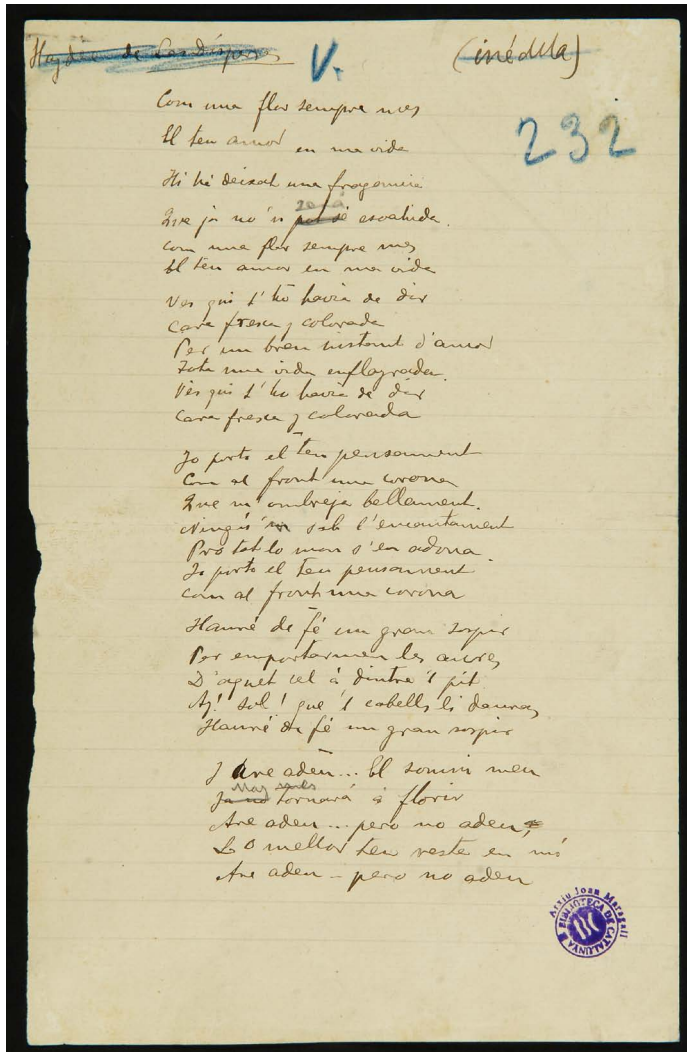 Haydée V. (inédita)
232
Com una flor sempre mes
El teu amor en ma vida
Hi há deixat una fragancia
Que ja no 's pot sé esvahida.
Com una flor sempre mes
El teu amor en ma vida
Ves qui t' ho havia de dir
Cara fresca y colorada
Per un breu instant d'amor
Tota una vida enflayrada.
Vés qui t' ho havia de dir
Cara fresca y colorada
Jo porto el teu pensament
Com al front una corona
Que m' ombreja bellament.
Ningú sab l'encantament
Pro tot lo mon s'en adona.
Jo porto el teu pensament
Com al front una corona
Hauré de fé un gran sospir
Per emportarmen les aures
D'aquet cel á dintre 'l pit
Ay! Sol! que 'l cabells li dauras
Hauré de fé un gran sospir
Y Are adeu... El somni meu
May més
Ja no tornará á florir
Are adeu... pero no adeu,
Lo mellor teu reste en mi
Are adeu - pero no adeu
Arxiu Joan Maragall
BIBLIOTECA DE CATALUNYA